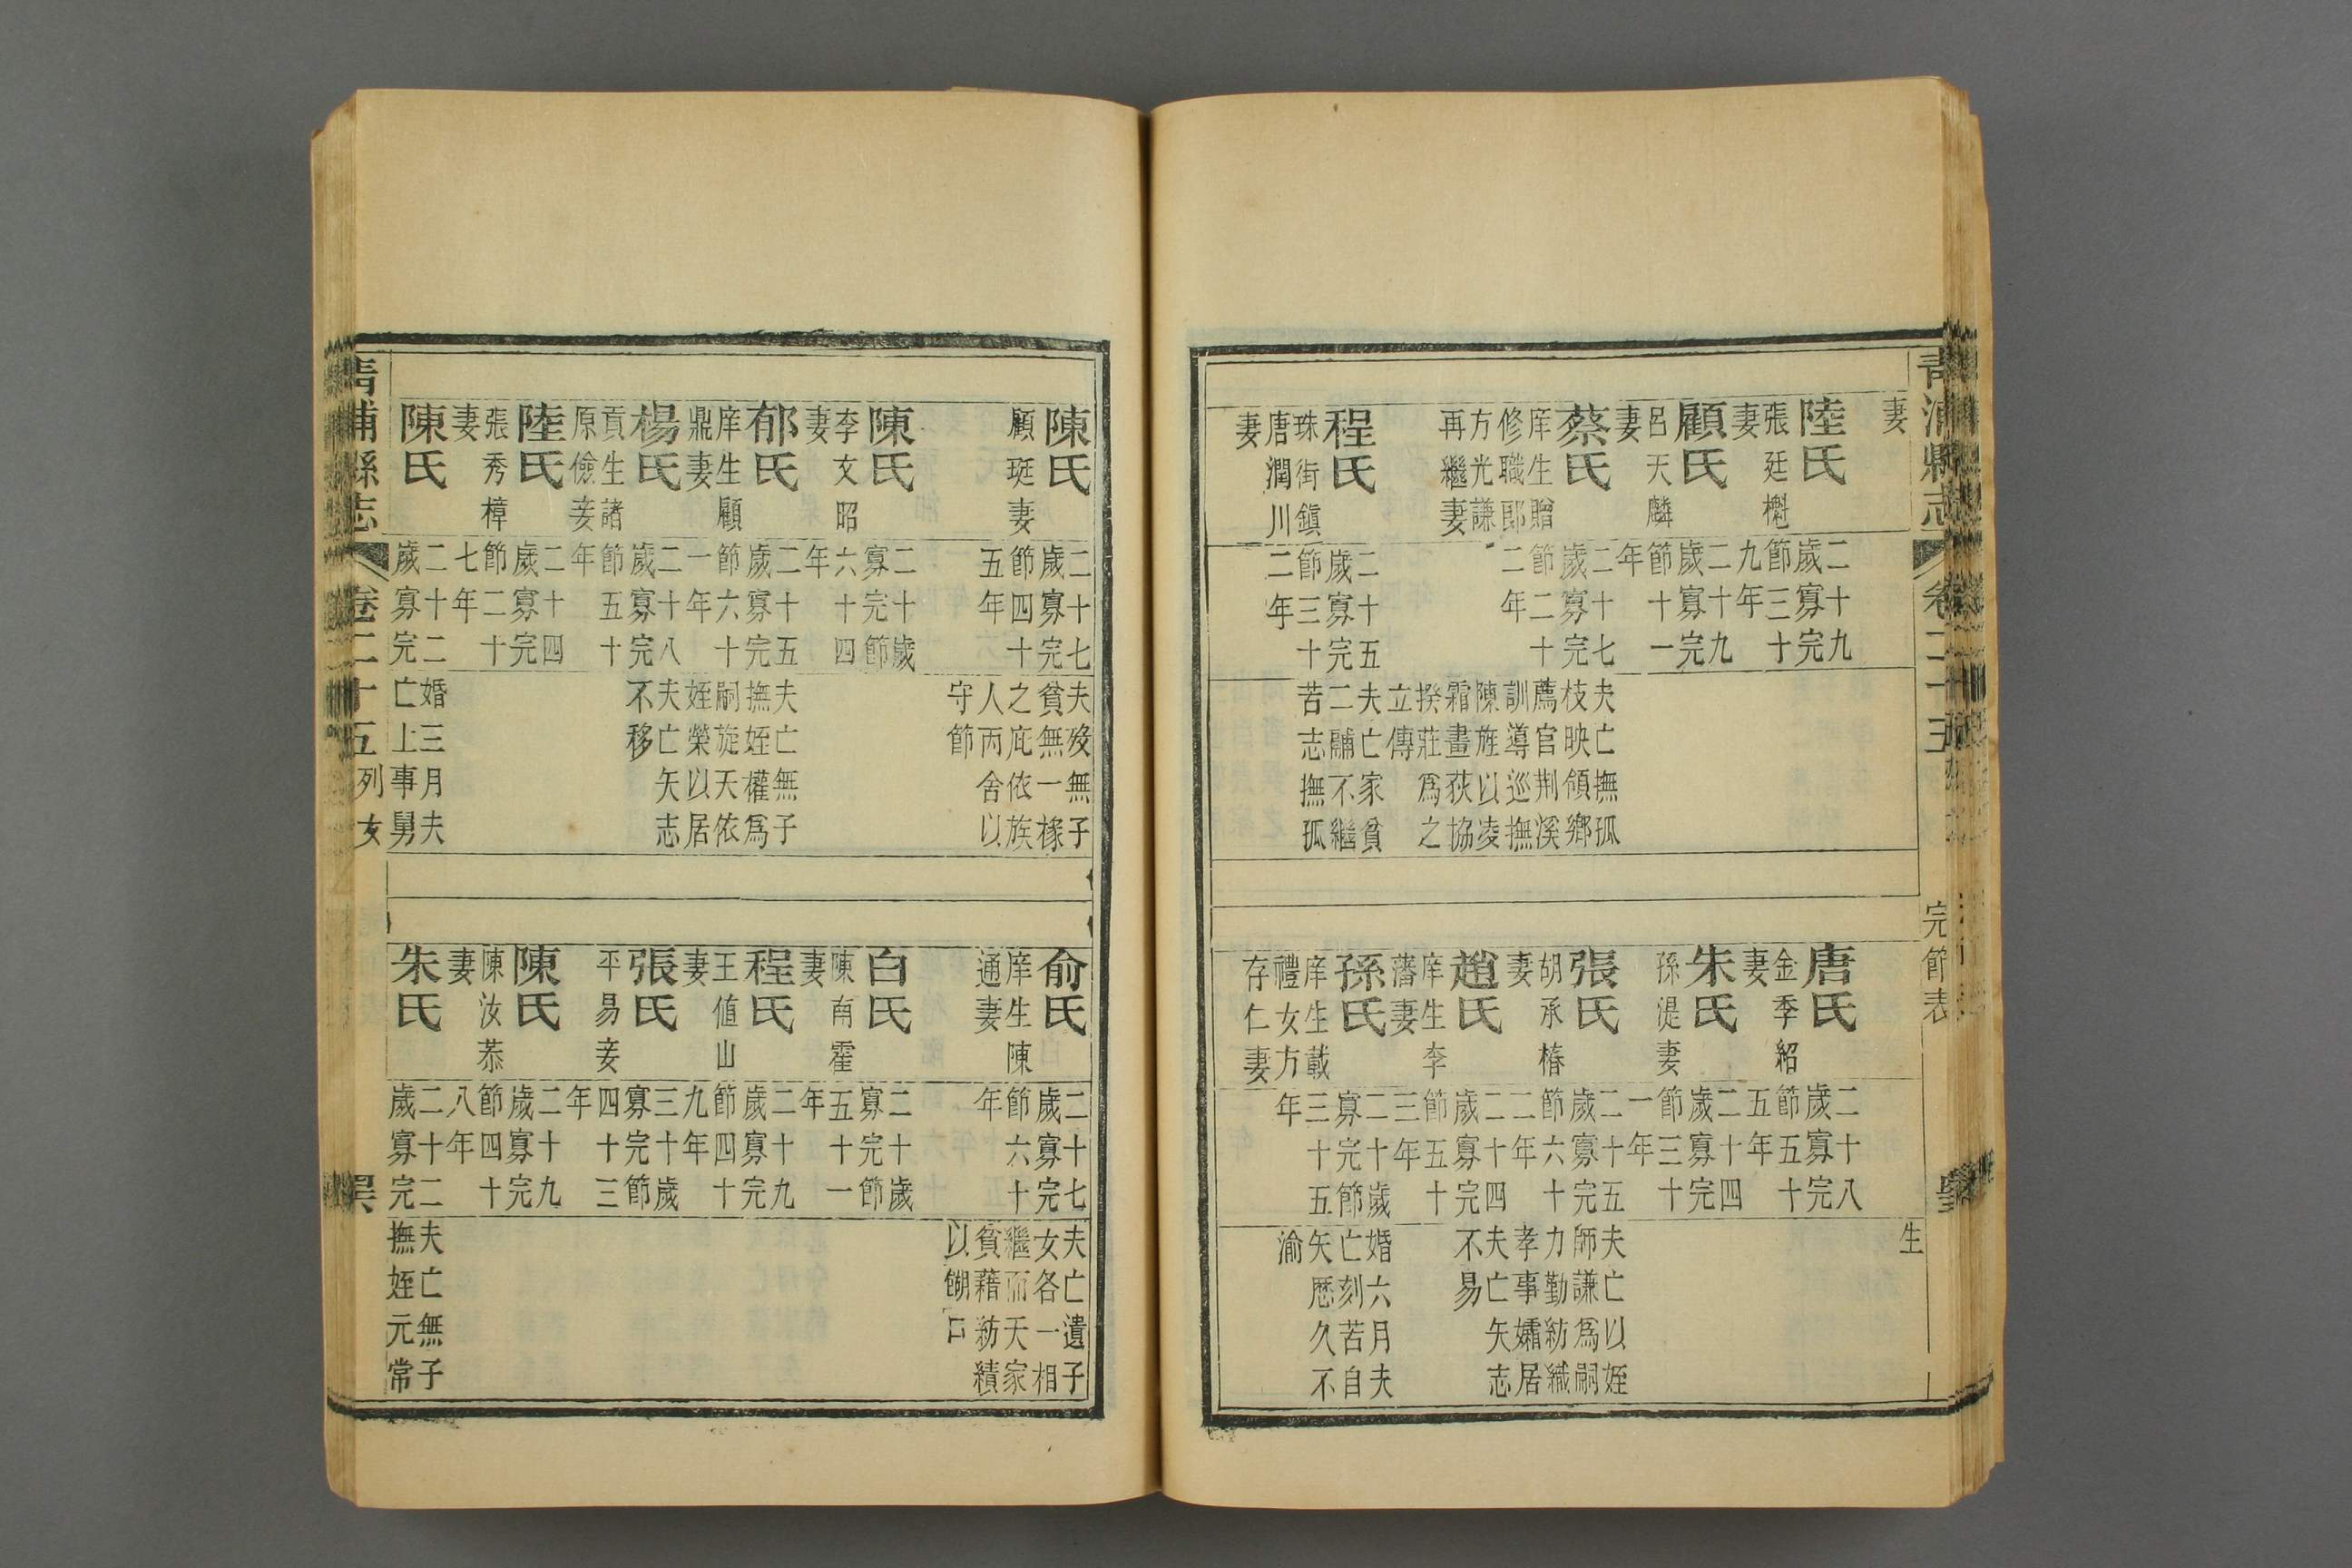 青浦縣志
卷二十五
完節表
妻
陸氏
張廷櫆
妻
二十九
歲寡完
節三十
九年
顧氏
呂天麟
妻
二十九
歲寡完
節十一
年
蔡氏
庠生贈
修職郎
方光謙
再繼妻
二十七
歲寡完
節二十
二年
夫亡撫孤
枝映領鄉
薦官荆溪
訓導巡撫
陳旌以凌
霜畫荻協
揆莊爲之
立傳
程氏
珠街鎮
唐潤川
妻
二十五
歲寡完
節三十
二年
夫亡家貧
二鬴不繼
苦志撫孤
生
唐氏
金季紹
妻
二十八
歲寡完
節五十
五年
朱氏
孫湜妻
二十四
歲寡完
節三十
一年
張氏
胡承椿
妻
二十五
歲寡完
節六十
二年
夫亡以姪
師謙爲嗣
力勤紡織
孝事孀居
趙氏
庠生李
藩妻
二十四
歲寡完
節五十
三年
夫亡矢志
不易
孫氏
庠生載
禮女方
存仁妻
二十歲
寡完節
三十五
年
婚六月夫
亡刻苦自
矢歷久不
渝
陳氏
顧珽妻
二十七
歲寡完
節四十
五年
夫歿無子
貧無一椽
之庇依族
人丙舍以
守節
陳氏
李文昭
妻
二十歲
寡完節
六十四
年
郁氏
庠生顧
鼎妻
二十五
歲寡完
節六十
一年
夫亡無子
撫姪權爲
嗣旋天依
姪榮以居
楊氏
貢生諸
原儉妾
二十八
歲寡完
節五十
年
夫亡矢志
不移
陸氏
張秀樟
妻
二十四
歲寡完
節二十
七年
陳氏
二十二
歲寡完
婚三月夫
亡上事舅
俞氏
庠生陳
通妻
二十七
歲寡完
節六十
年
夫亡遺子
女各一相
繼而天家
貧藉紡績
以餬口
白氏
陳南霍
妻
二十歲
寡完節
五十一
年
程氏
王値山
妻
二十九
歲寡完
節四十
九年
張氏
平易妾
三十歲
寡完節
四十三
年
陳氏
陳汝恭
妻
二十九
歲寡完
節四十
八年
朱氏
二十二
歲寡完
夫亡無子
撫姪元常
青浦縣志
卷二十五
列女